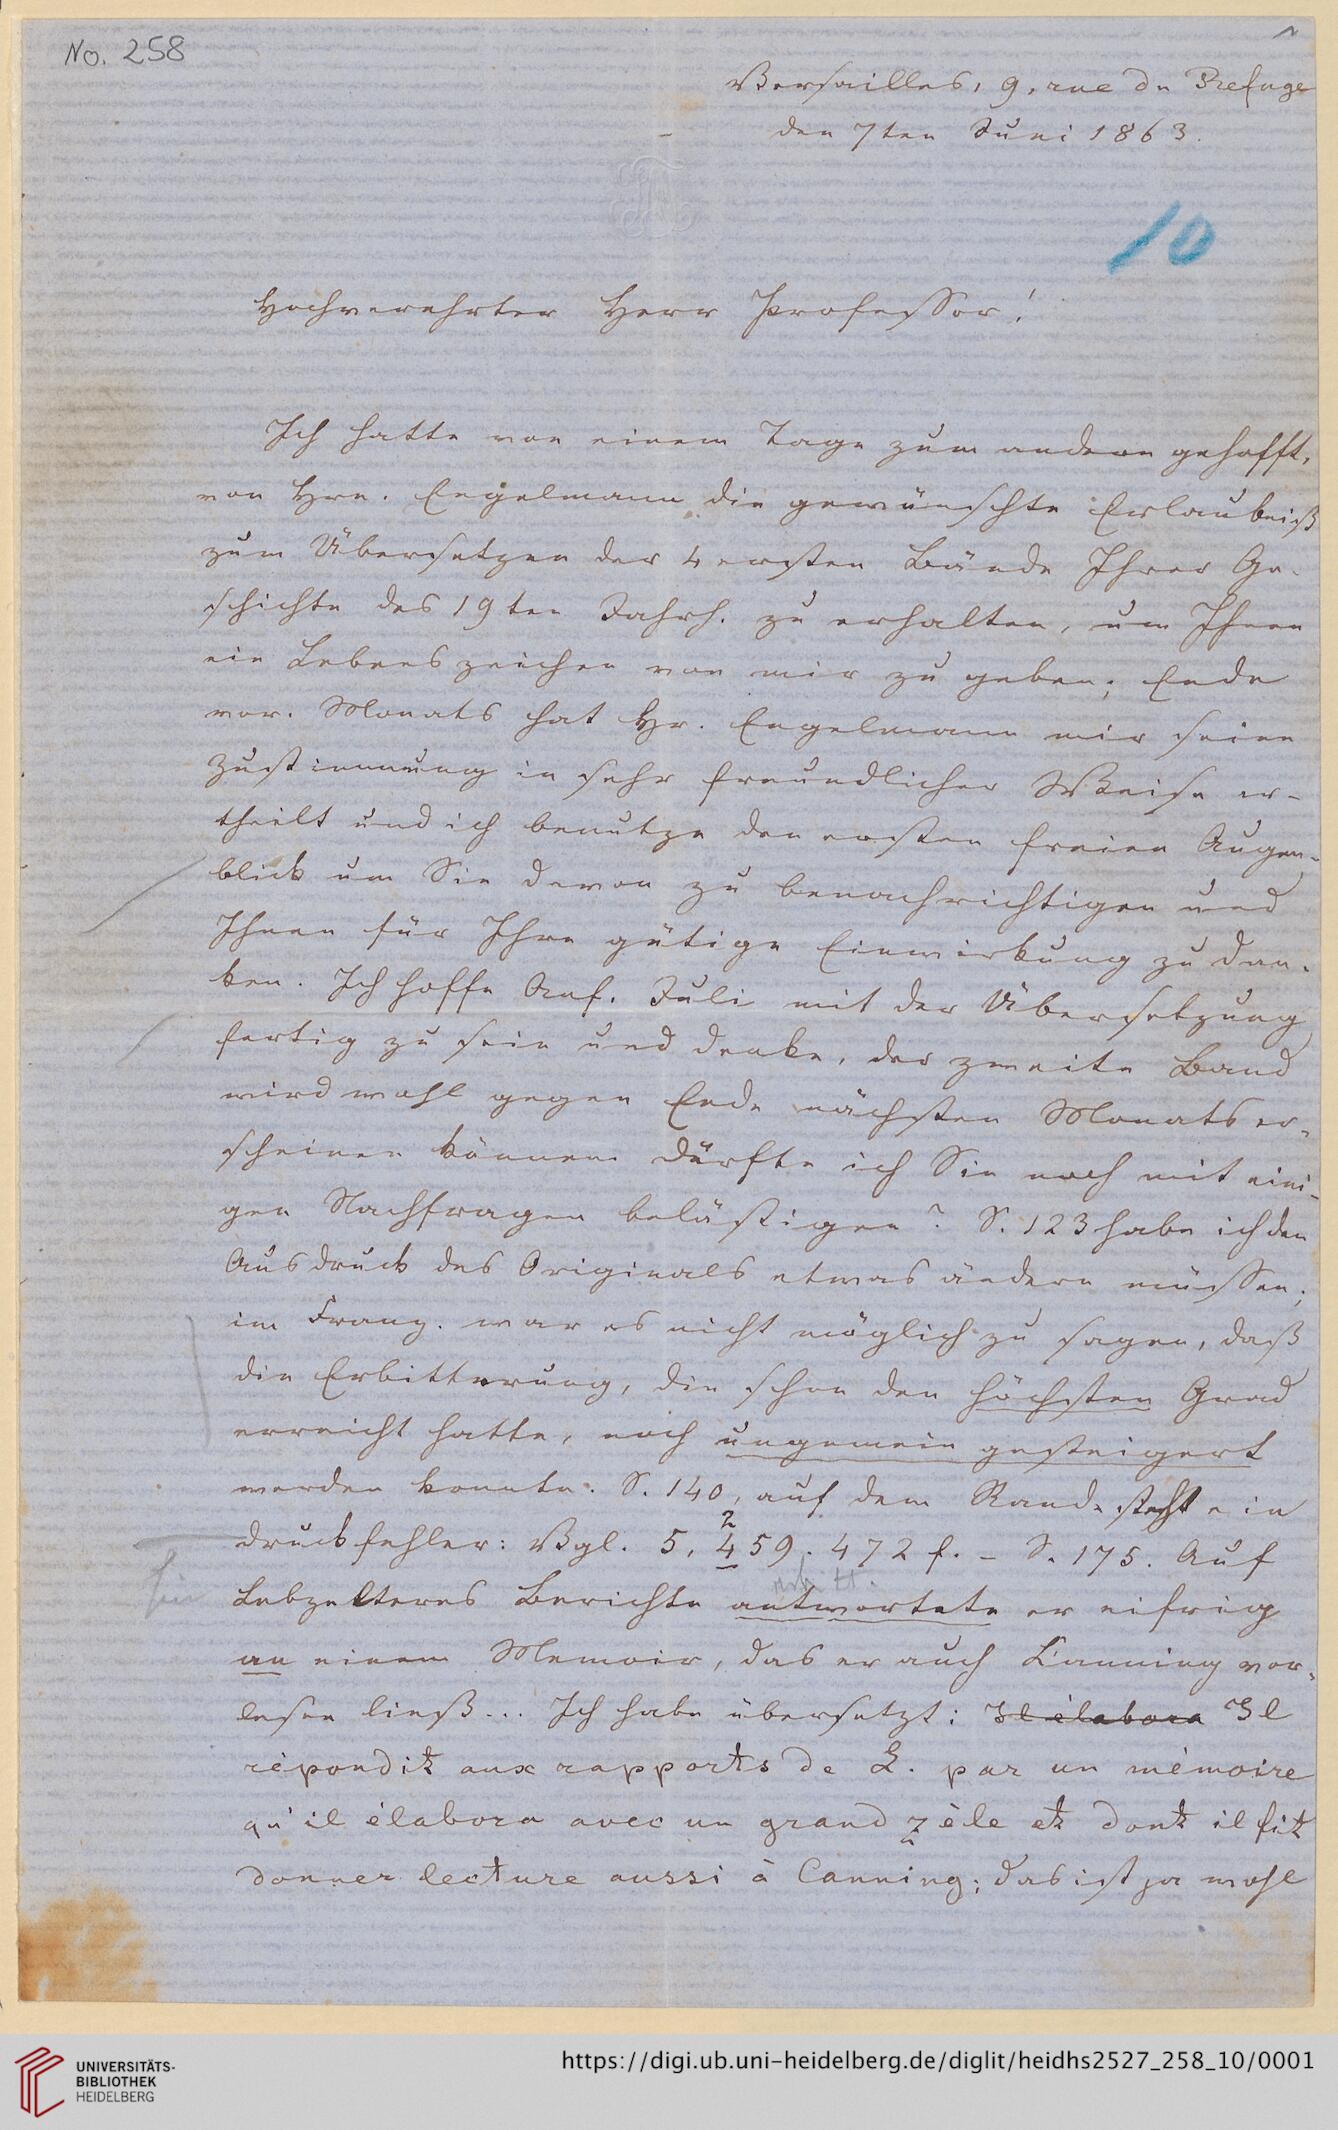 No. 258
Versailles, 9, rue du Refuge
den 7ten Juni 1863.
10
Hochverehrter Herr Professor!
Ich hatte von einem Tage zum andern gehofft,
von Hrn. Engelmann die gewünschte Erlaubniß
zum Übersetzen der 4 ersten Bände Ihrer Ge-
schichte des 19ten Jahrh. zu erhalten, um Ihnen
ein Lebenszeichen von mir zu geben; Ende
vor. Monats hat Hr. Engelmann mir seine
Zustimmung in sehr freundlicher Weise er-
theilt und ich benutze den ersten freien Augen-
blick um Sie davon zu benachrichtigen und
Ihnen für Ihre gütige Einwirkung zu dan-
ken. Ich hoffe Anf. Juli mit der Übersetzung
fertig zu sein und denke, der zweite Band
wird wohl gegen Ende nächsten Monats er-
scheinen können. Dürfte ich Sie noch mit eini-
gen Nachfragen belästigen? S. 123 habe ich den
Ausdruck des Originals etwas ändern müssen;
im Franz. war es nicht möglich zu sagen, daß
die Erbitterung, die schon den höchsten Grad
erreicht hatte, noch ungemein gesteigert
werden konnte. S. 140, auf dem Rande steht ein
Druckfehler: Vgl. 5, 459. 472 f. – S. 175. Auf
2
Lebzelterns Berichte antwortete er eifrig
an einem Memoir, das er auch Canning vor-
lesen ließ... Ich habe übersetzt: Il élabora Il
répondit aux rapports de L. par un mémoire
qu'il élabora avec un grand zèle et dont il fit
donner lecture aussi à Canning; das ist ja wohl
UNIVERSITÄTS-
BIBLIOTHEK
HEIDELBERG
https://digi.ub.uni-heidelberg.de/diglit/heidhs2527_258_10/0001